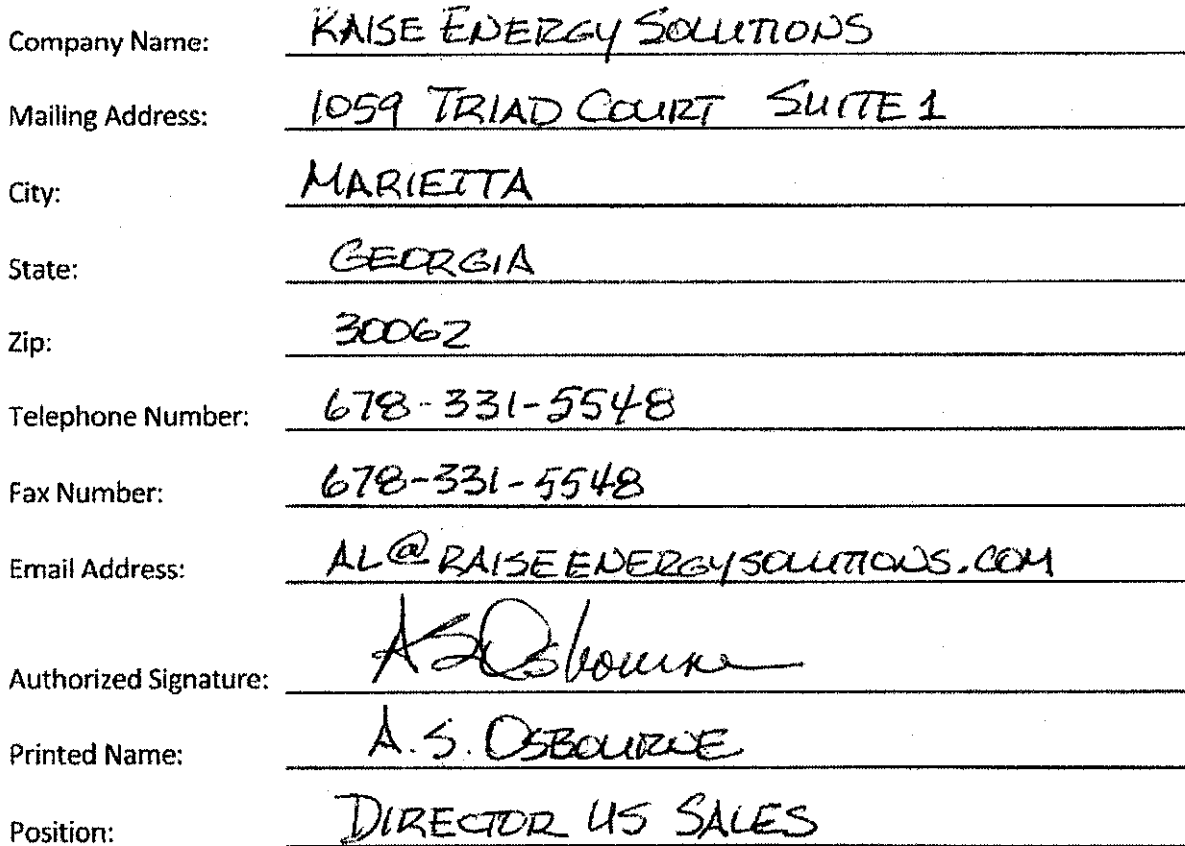 Company Name: RAISE ENERGY SOLUTIONS
Mailing Address: 1059 TRIAD COURT SUITE 1
City: MARIETTA
State: GEORGIA
Zip: 30062
Telephone Number: 678-331-5548
Fax Number: 678-331-5548
Email Address: AL@RAISEENERGYSOLUTIONS.COM
Authorized Signature: ASOsbourne
Printed Name: A.S. OSBOURNE
Position: DIRECTOR US SALES